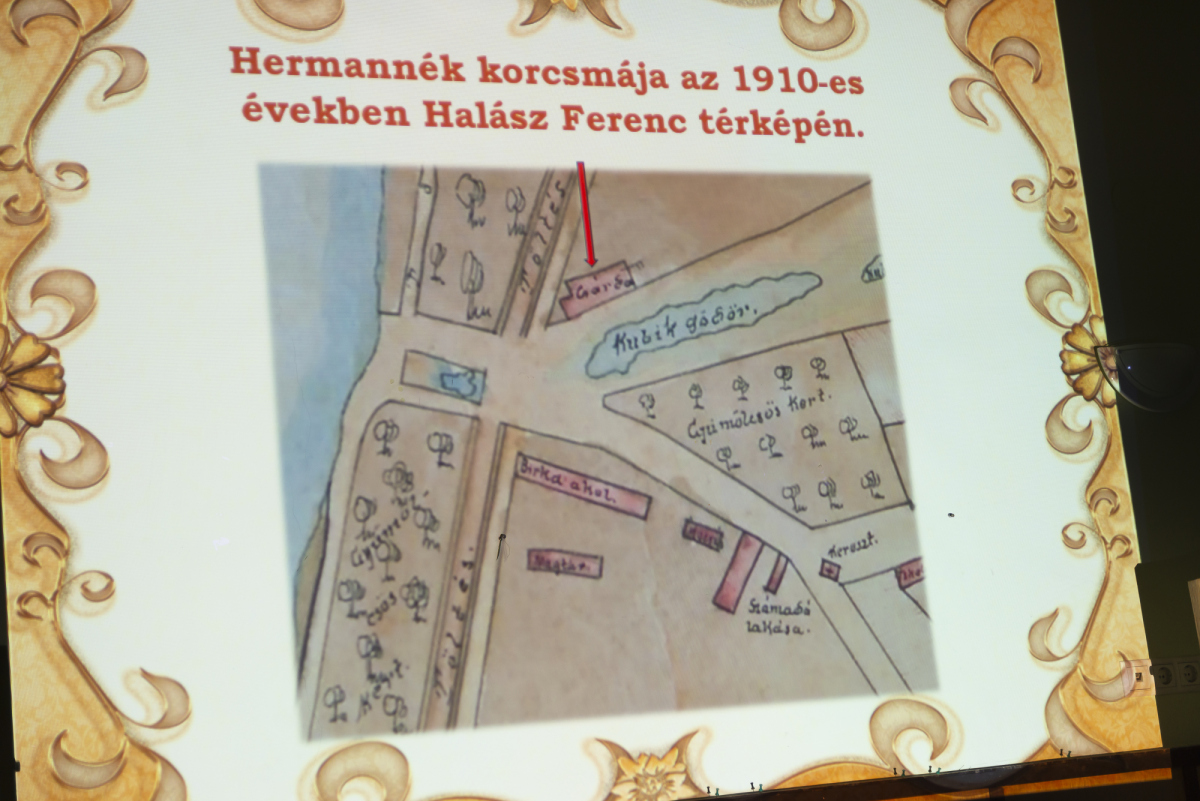 Hermannék korcsmája az 1910-es
években Halász Ferenc térképén.
Csárda
Kubik gödör.
Gyümölcsös kert.
Birka akol.
Magtár.
Kereszt.
Számadó
lakása.